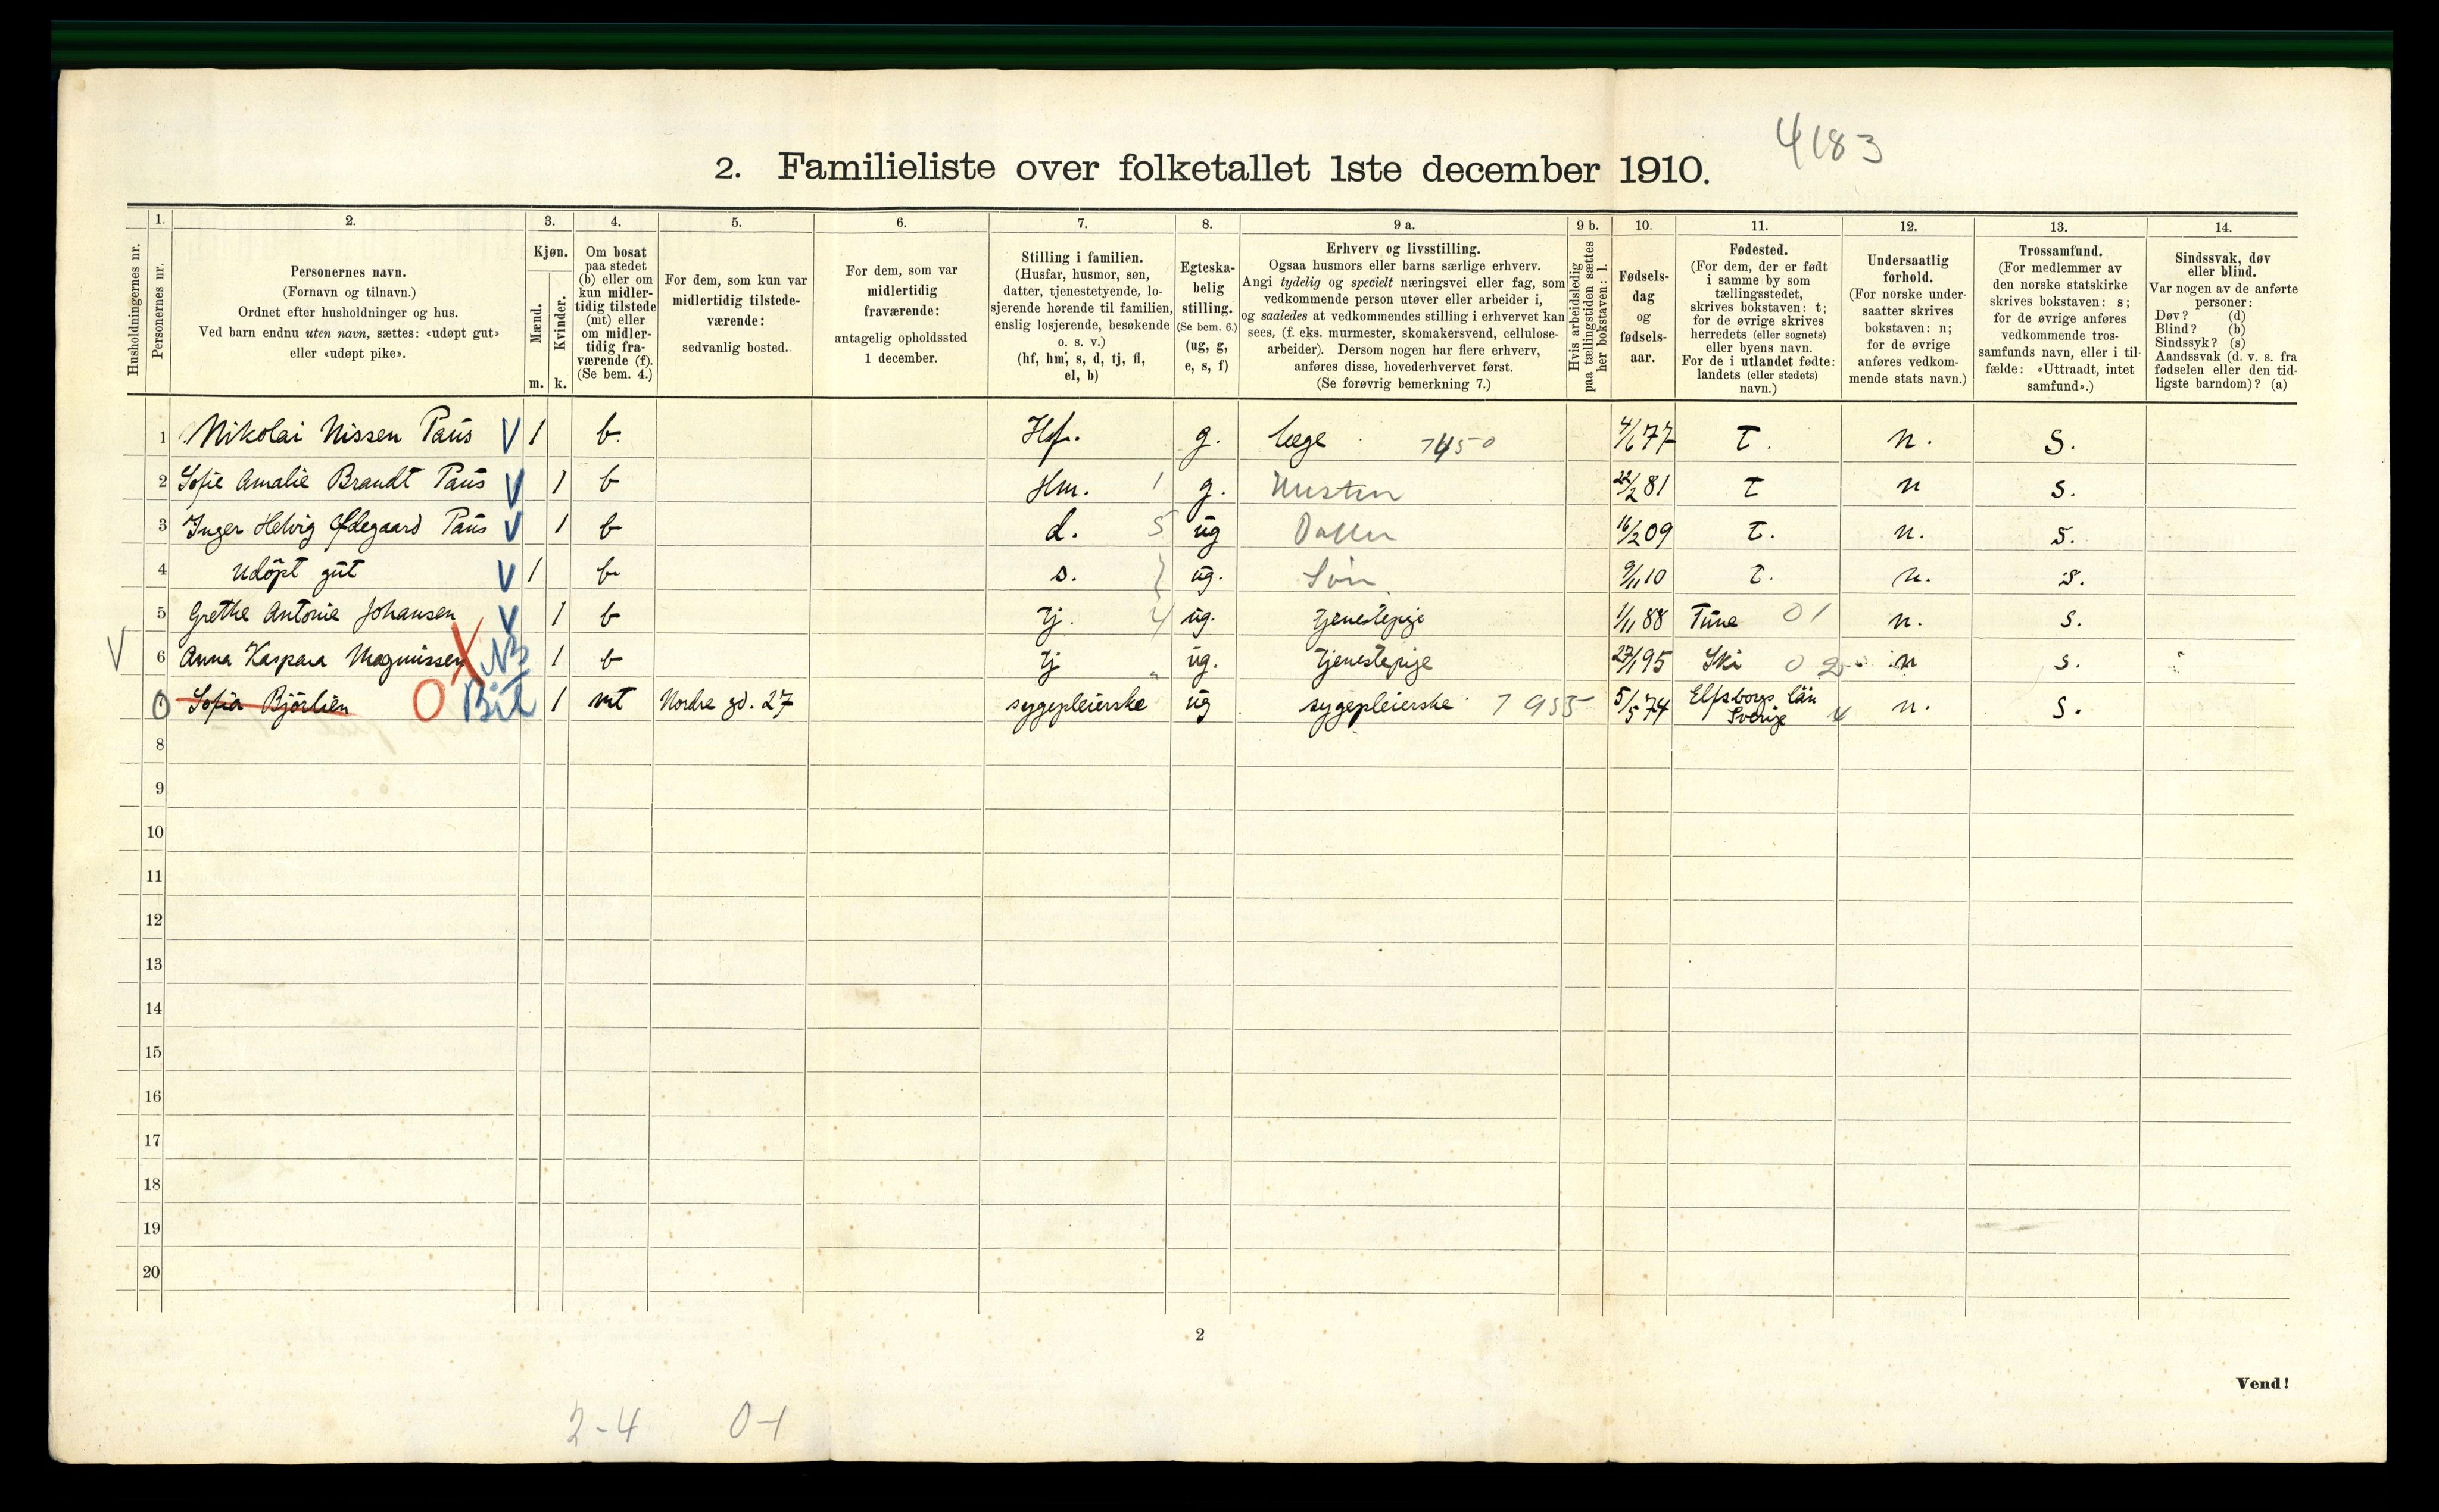 4183
2. Familieliste over folketallet 1ste december 1910.
Husholdningernes nr.
1.
Personernes nr.
2.
Personernes navn.
(Fornavn og tilnavn.)
Ordnet efter husholdninger og hus.
Ved barn endnu uten navn, sættes: «udøpt gut»
eller «udøpt pike».
3.
Kjøn.
Mænd.
Kvinder.
m. k.
4.
Om bosat
paa stedet
(b) eller om
kun midler-
tidig tilstede
(mt) eller
om midler-
tidig fra-
værende (f).
(Se bem. 4.)
5.
For dem, som kun var
midlertidig tilstede-
værende:
sedvanlig bosted.
6.
For dem, som var
midlertidig
fraværende:
antagelig opholdssted
1 december.
7.
Stilling i familien.
(Husfar, husmor, søn,
datter, tjenestetyende, lo-
sjerende hørende til familien,
enslig losjerende, besøkende
o. s. v.)
(hf, hm, s, d, tj, fl,
el, b)
8.
Egteska-
belig
stilling.
(Se bem. 6.)
(ug, g,
e, s, f)
9 a.
Erhverv og livsstilling.
Ogsaa husmors eller barns særlige erhverv.
Angi tydelig og specielt næringsvei eller fag, som
vedkommende person utøver eller arbeider i,
og saaledes at vedkommendes stilling i erhvervet kan
sees, (f. eks. murmester, skomakersvend, cellulose-
arbeider). Dersom nogen har flere erhverv,
anføres disse, hovederhvervet først.
(Se forøvrig bemerkning 7.)
9 b.
Hvis arbeidsledig
paa tællingstiden sættes
her bokstaven: l.
10.
Fødsels-
dag
og
fødsels-
aar.
11.
Fødested.
(For dem, der er født
i samme by som
tællingsstedet,
skrives bokstaven: t;
for de øvrige skrives
herredets (eller sognets)
eller byens navn.
For de i utlandet fødte:
landets (eller stedets)
navn.)
12.
Undersaatlig
forhold.
(For norske under-
saatter skrives
bokstaven: n;
for de øvrige
anføres vedkom-
mende stats navn.)
13.
Trossamfund.
(For medlemmer av
den norske statskirke
skrives bokstaven: s;
for de øvrige anføres
vedkommende tros-
samfunds navn, eller i til-
fælde: «Uttraadt, intet
samfund».)
14.
Sindssvak, døv
eller blind.
Var nogen av de anførte
personer:
Døv? (d)
Blind? (b)
Sindssyk? (s)
Aandssvak (d. v. s. fra
fødselen eller den tid-
ligste barndom)? (a)
1 Nikolai Nissen Paus V 1 b. Hf. g. læge 7450 4/6 77 t. n. s.
2 Sofie Amalie Brandt Paus V 1 b Hm. 1 g. Hustru 22/2 81 t n s.
3 Inger Helvig Ødegaard Paus V 1 b d. 5 ug Datter 16/2 09 t. n. s.
4 Udöpt gut V 1 b s. } ug. Søn 9/11 10 t. n. s.
5 Grethe Antonie Johansen V 1 b tj. 4 ug. tjenestepige 1/11 88 Tune 01 n. s.
V 6 Anna Kaspara Magnussen X NB 1 b tj " ug. tjenestepige 27/1 95 Ski 02 n s.
0 Sofia Björlien O Bil 1 mt Nordre gd. 27 sygepleierske ug sygepleierske 7955 5/5 74 Elfsborgs län
Sverige 4 n. s.
8
9
10
11
12
13
14
15
16
17
18
19
20
2
Vend!
2-4 0-1